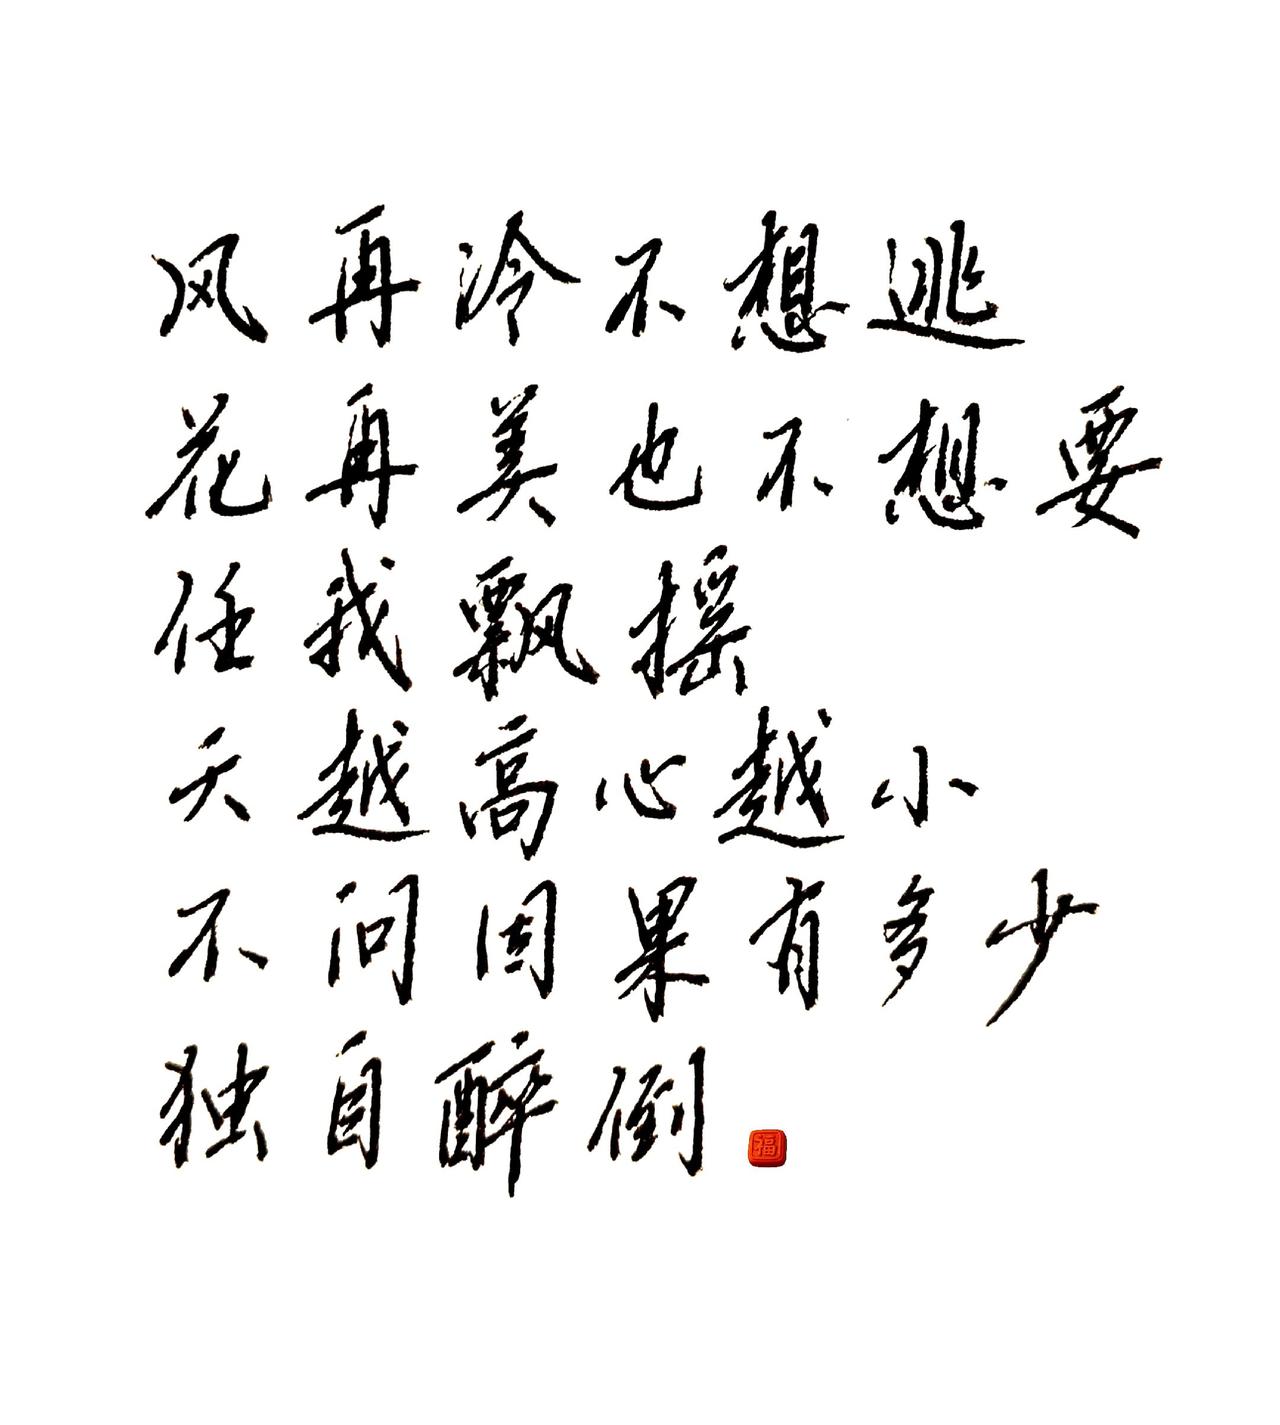 风再冷不想逃
花再美也不想要
任我飘摇
天越高心越小
不问因果有多少
独自醉倒
福